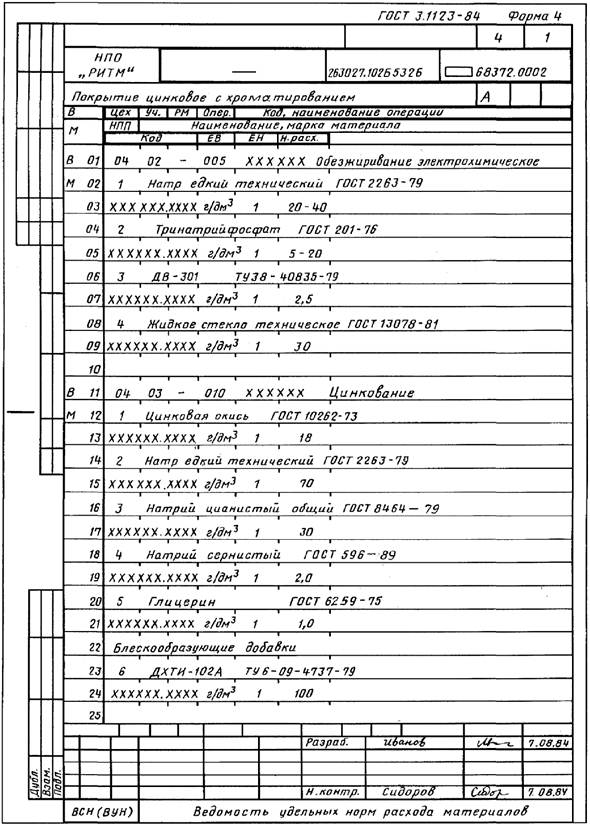 ГОСТ 3.1123-84 Форма 4
4 1
НПО „РИТМ“ — 263027.10265326 68372.0002
Покрытие цинковое с хроматированием А
В Цех Уч. РМ Опер. Код, наименование операции
М НПП Наименование, марка материала
Код ЕВ ЕН Н.расх.
В 01 04 02 - 005 XXXXXX Обезжиривание электрохимическое
М 02 1 Натр едкий технический ГОСТ 2263-79
03 XXXXXX.XXXX г/дм³ 1 20-40
04 2 Тринатрийфосфат ГОСТ 201-76
05 XXXXXX.XXXX г/дм³ 1 5-20
06 3 ДВ-301 ТУ38-40835-79
07 XXXXXX.XXXX г/дм³ 1 2,5
08 4 Жидкое стекло техническое ГОСТ 13078-81
09 XXXXXX.XXXX г/дм³ 1 30
10
В 11 04 03 - 010 XXXXXX Цинкование
М 12 1 Цинковая окись ГОСТ 10262-73
13 XXXXXX.XXXX г/дм³ 1 18
14 2 Натр едкий технический ГОСТ 2263-79
15 XXXXXX.XXXX г/дм³ 1 70
16 3 Натрий цианистый общий ГОСТ 8464-79
17 XXXXXX.XXXX г/дм³ 1 30
18 4 Натрий сернистый ГОСТ 596-89
19 XXXXXX.XXXX г/дм³ 1 2,0
20 5 Глицерин ГОСТ 6259-75
21 XXXXXX.XXXX г/дм³ 1 1,0
22 Блескообразующие добавки
23 6 ДХТИ-102А ТУ6-09-4737-79
24 XXXXXX.XXXX г/дм³ 1 100
25
Разраб. Иванов 7.08.84
Дубл.
Взам.
Подл.
Н.контр. Сидоров Сидор 7.08.84
ВСН (ВУН) Ведомость удельных норм расхода материалов